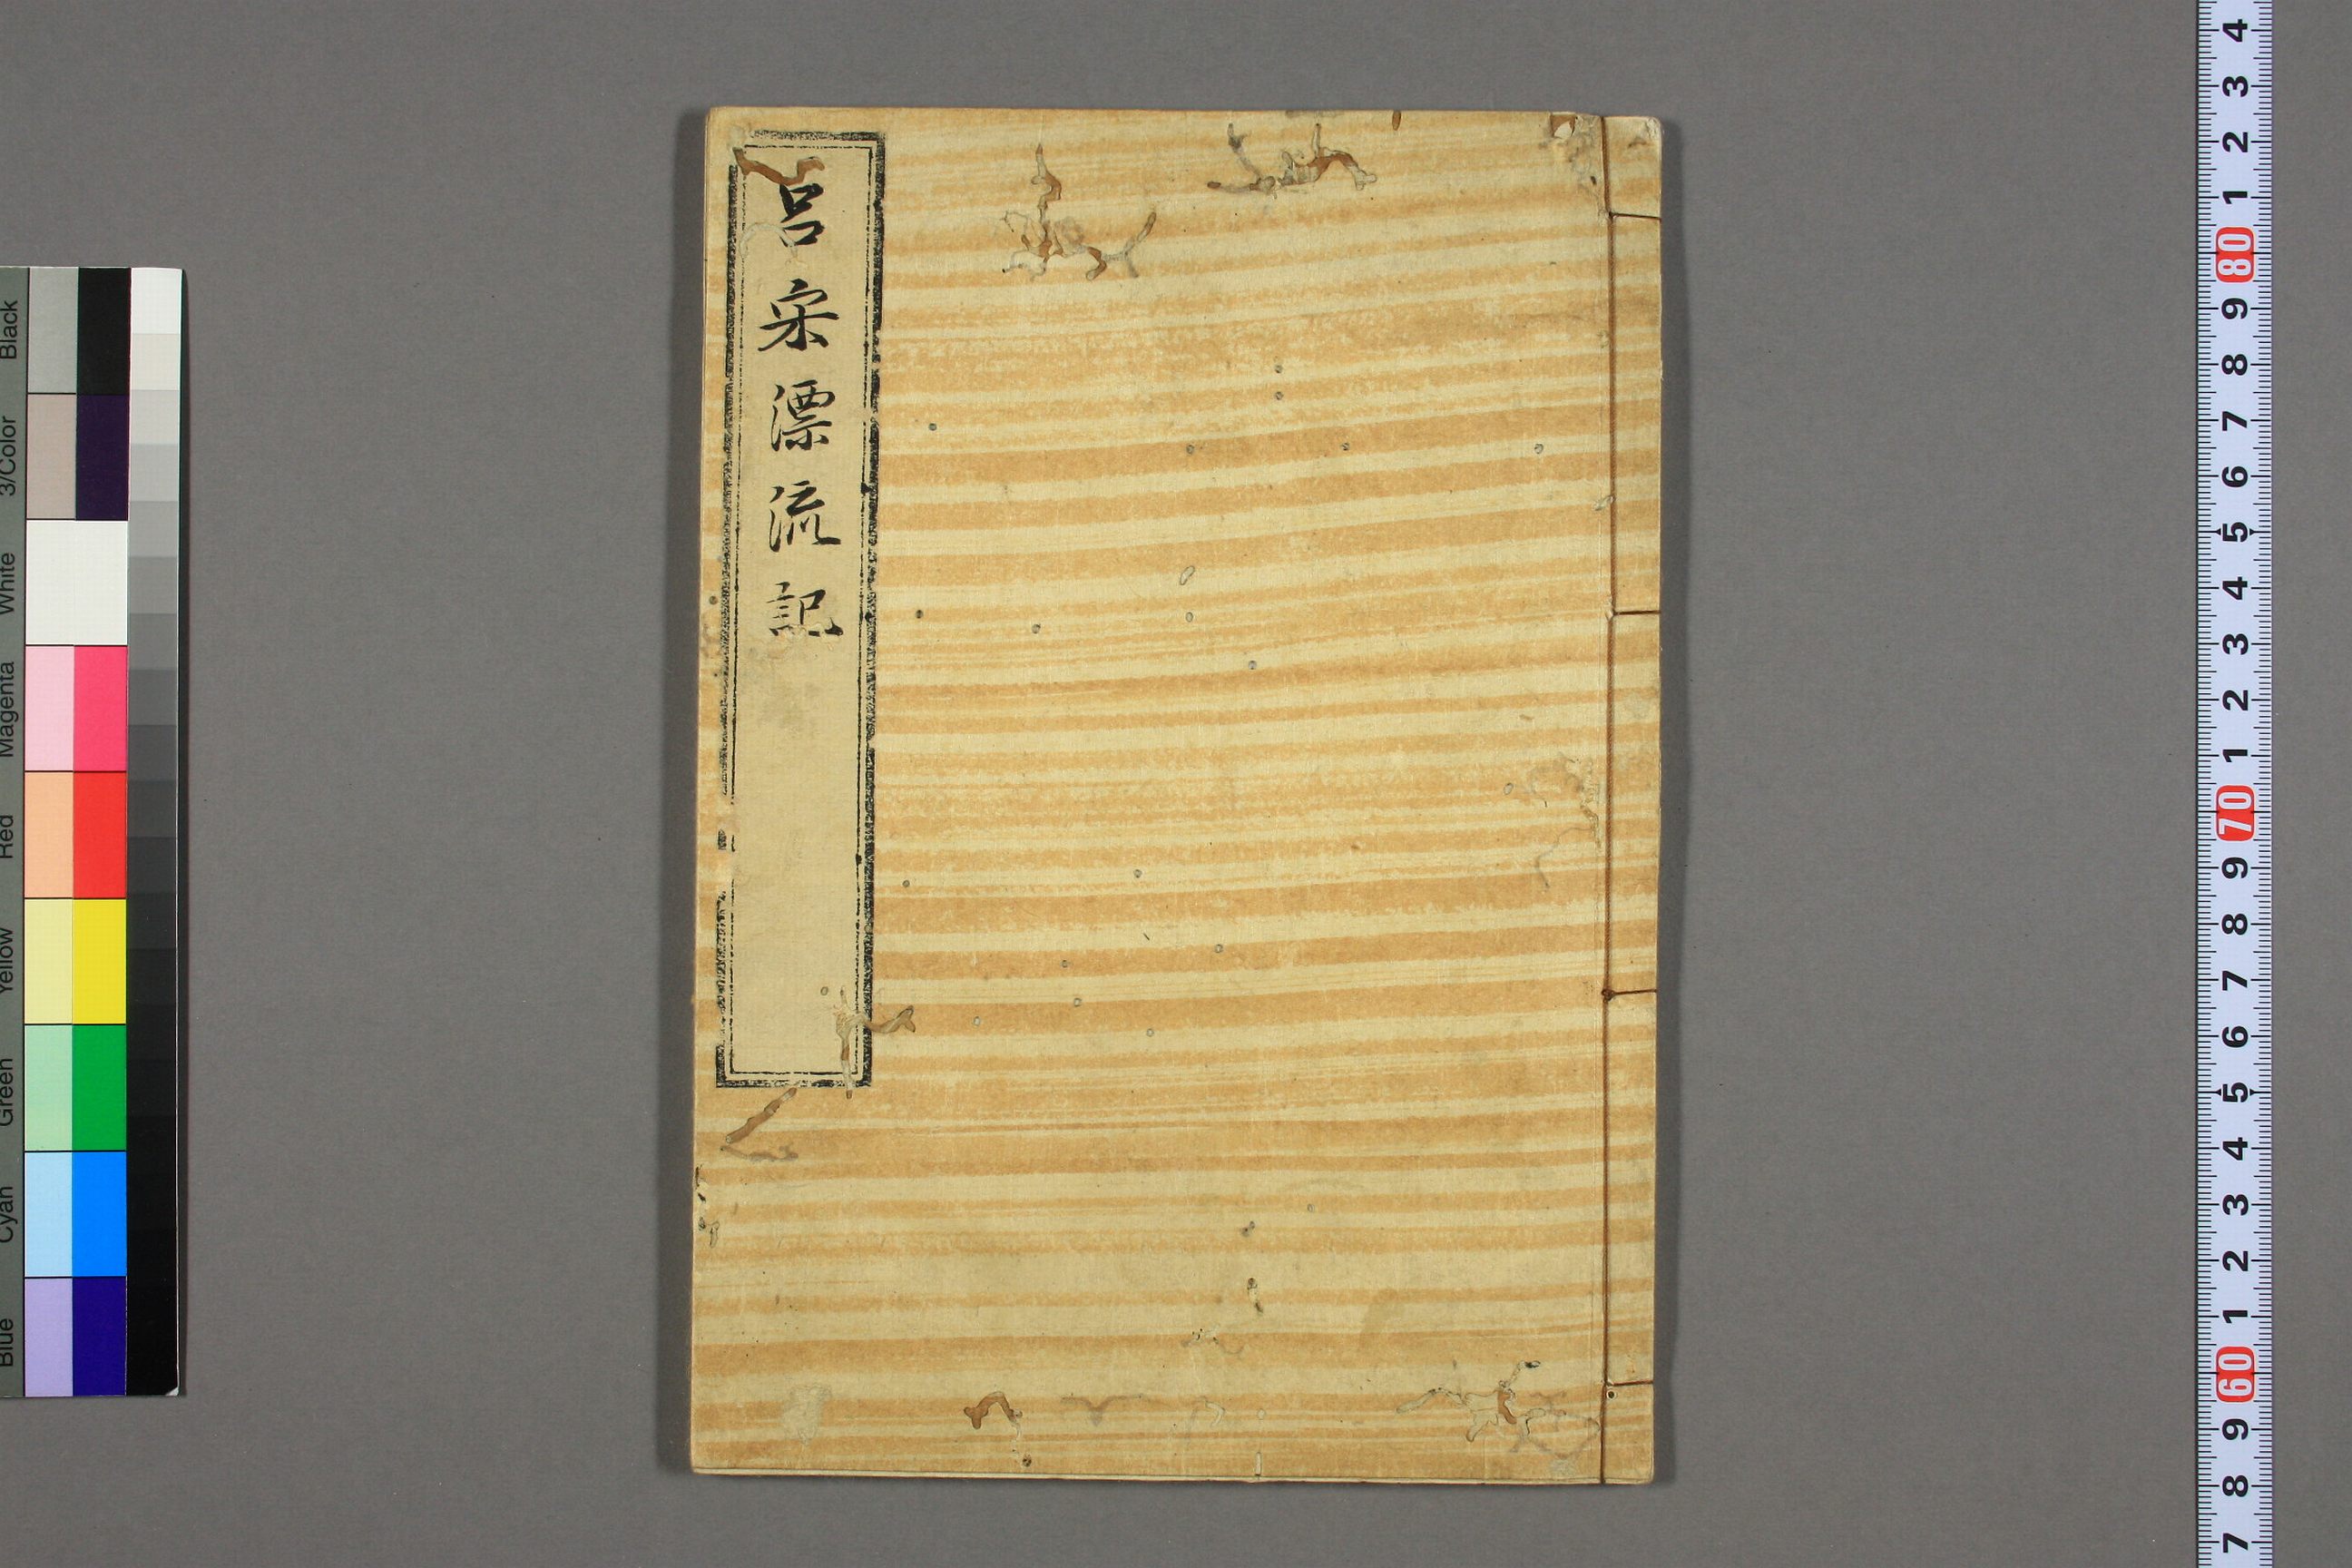 呂宋漂流記
Black
3/Color
White
Magenta
Red
Yellow
Green
Cyan
Blue
4
3
2
1
80
9
8
7
6
5
4
3
2
1
70
9
8
7
6
5
4
3
2
1
60
9
8
7